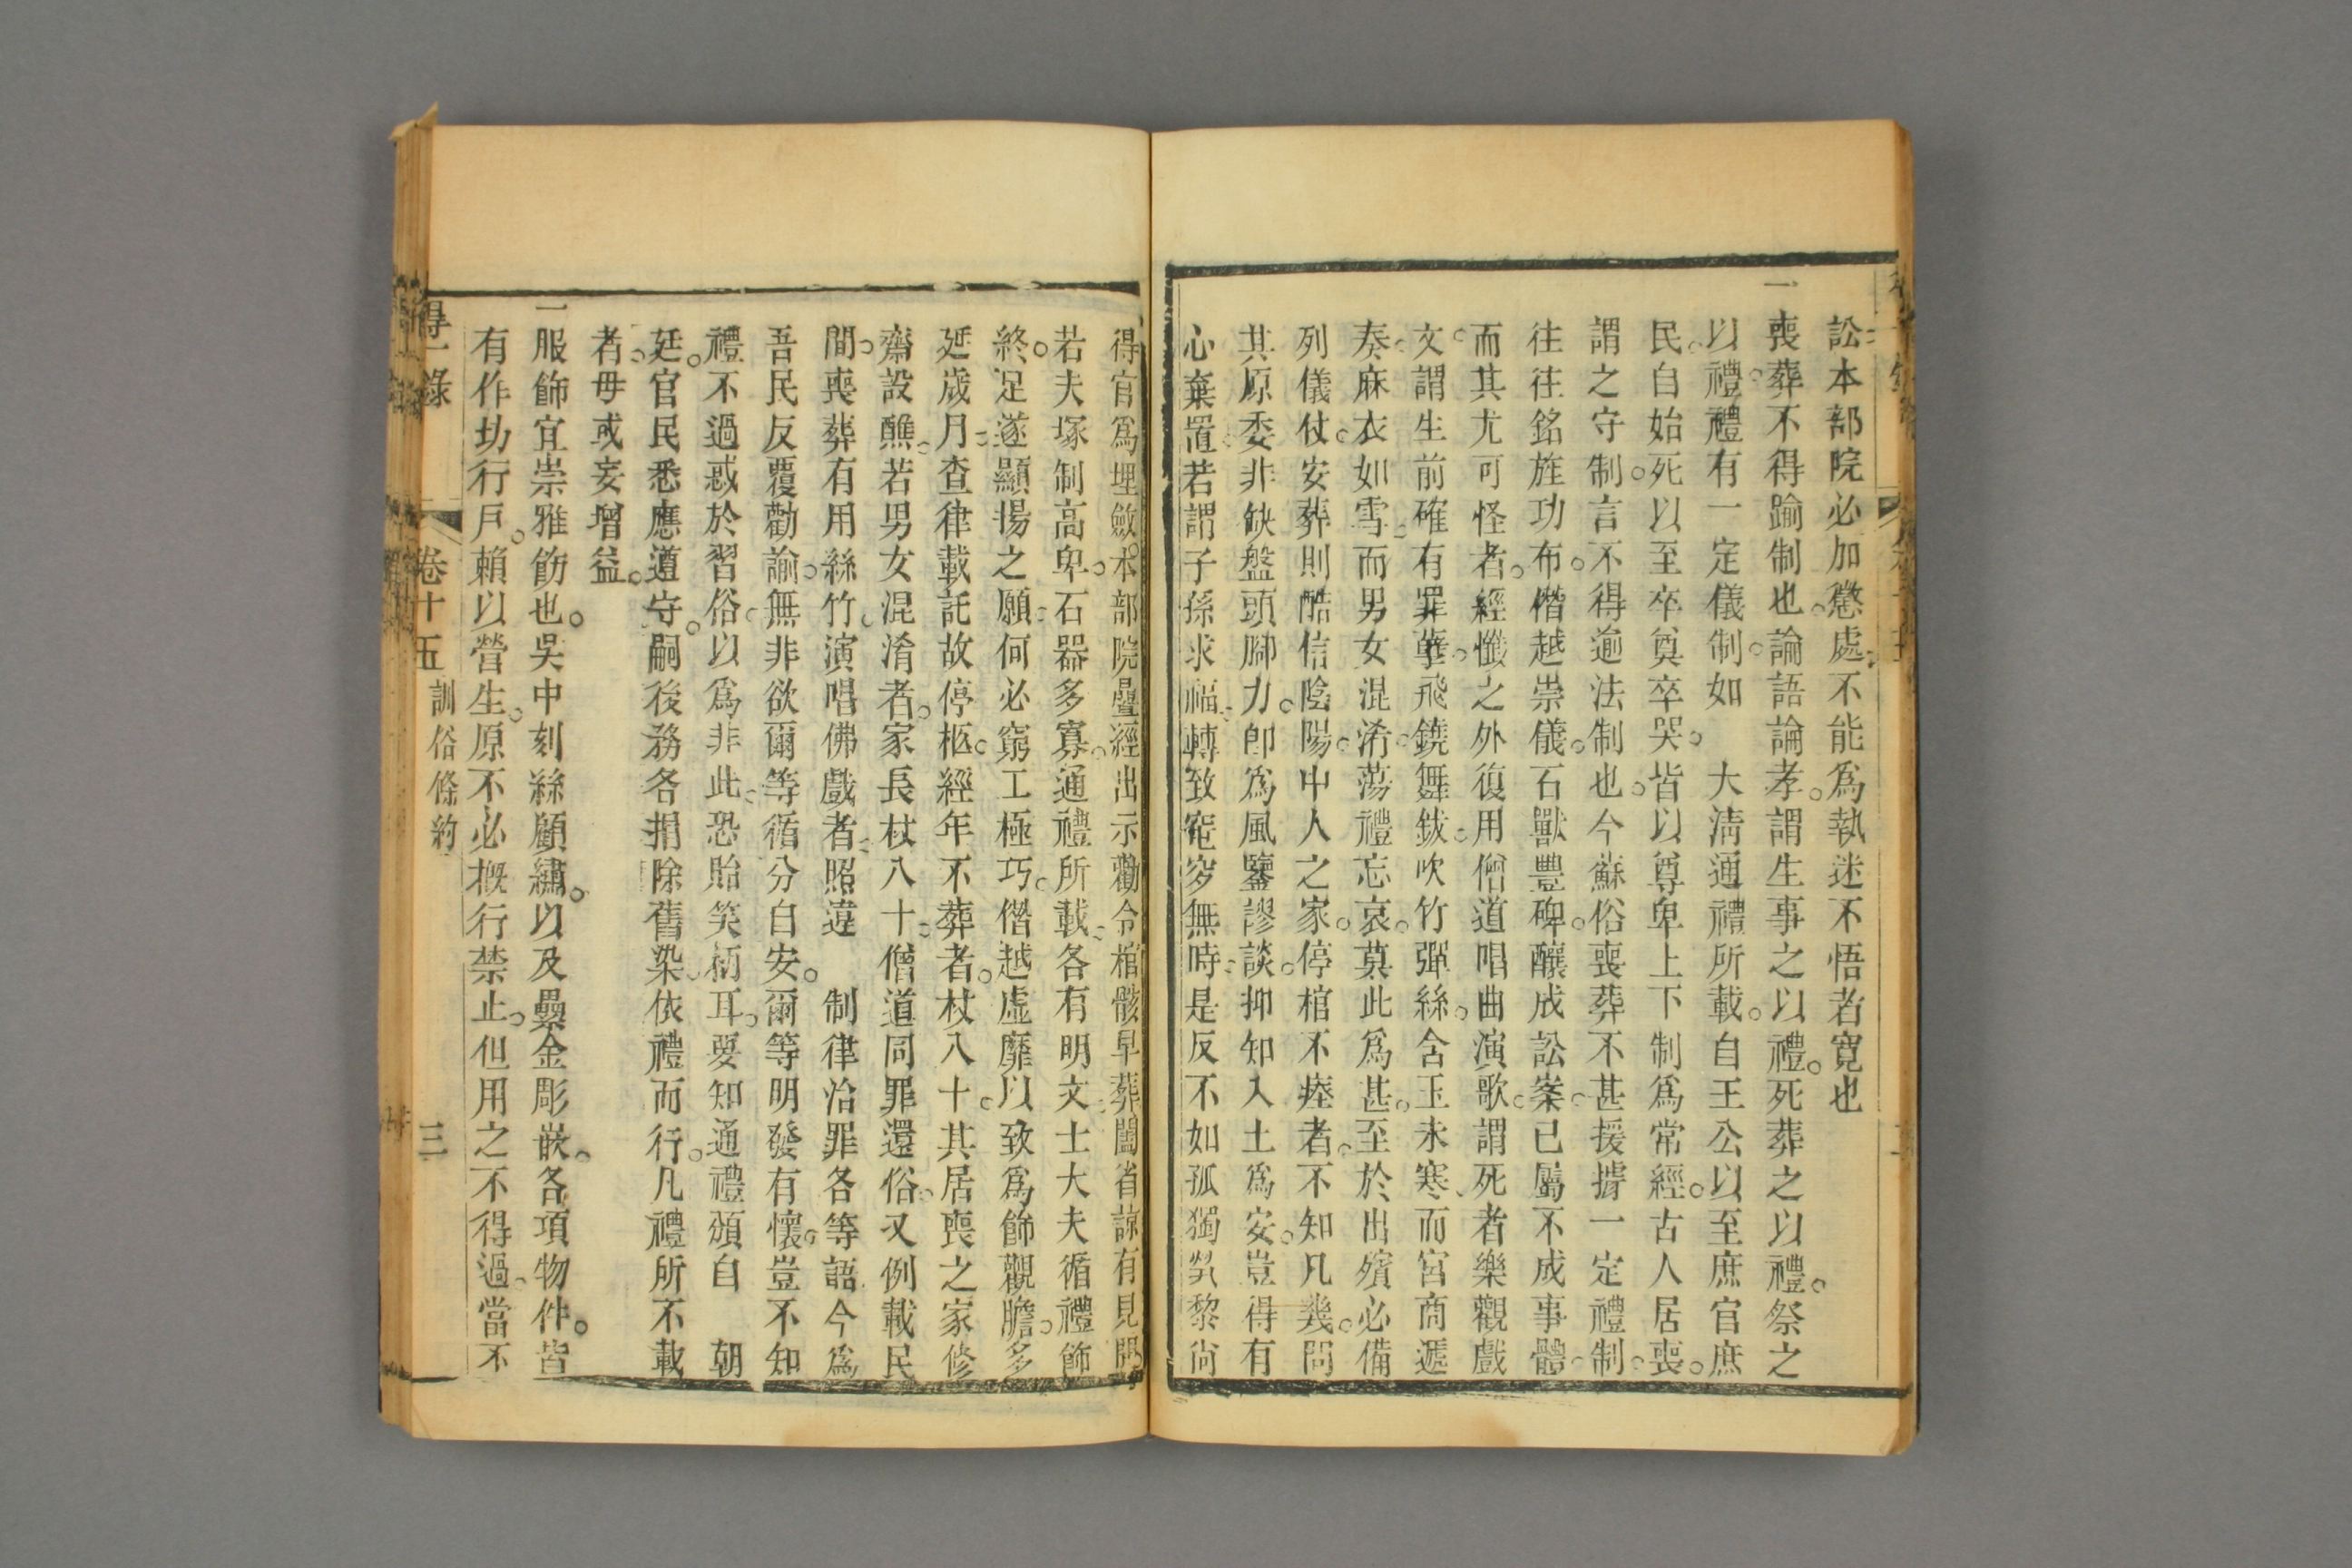 訟本部院必加懲處不能爲執迷不悟者寬也
一喪葬不得踰制也論語論孝謂生事之以禮死葬之以禮祭之
以禮禮有一定儀制如 大淸通禮所載自王公以至庶官庶
民自始死以至卒奠卒哭皆以尊卑上下制爲常經古人居喪
謂之守制言不得逾法制也今蘇俗喪葬不甚援據一定禮制
往往銘旌功布僭越崇儀石獸豐碑釀成訟案已屬不成事體
而其尤可怪者經懺之外復用僧道唱曲演歌謂死者樂觀戲
文謂生前確有罪孽飛鐃舞鈸吹竹彈絲含玉未寒而宮商遞
奏麻衣如雪而男女混淆蕩禮忘哀莫此爲甚至於出殯必備
列儀仗安葬則酷信陰陽中人之家停棺不瘞者不知凡幾問
其原委非缺盤頭腳力卽爲風鑒謬談抑知入土爲安豈得有
心棄置若謂子孫求福轉致窀穸無時是反不如孤獨煢黎尙
得官爲埋斂本部院疊經出示勸令棺骸早葬闔省諒有見聞
若夫塚制高卑石器多寡通禮所載各有明文士大夫循禮飾
終足遂顯揚之願何必窮工極巧僭越虛靡以致爲飾觀膽多
延歲月查律載託故停柩經年不葬者杖八十其居喪之家修
齋設醮若男女混淆者家長杖八十僧道同罪還俗又例載民
間喪葬有用絲竹演唱佛戲者照違 制律治罪各等語今爲
吾民反覆勸諭無非欲爾等循分自安爾等明發有懷豈不知
禮不過惑於習俗以爲非此恐貽笑柄耳要知通禮頒自 朝
廷官民悉應遵守嗣後務各捐除舊染依禮而行凡禮所不載
者毋或妄增益
一服飾宜崇雅飭也吳中刻絲顧繡以及纍金彫嵌各項物件皆
有作坊行戶賴以營生原不必概行禁止但用之不得過當不
得一錄 卷十五 訓俗條約 三